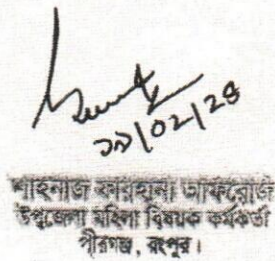 ১৯/০২/২৪
শাহনাজ ফারহানা আফরোজ
উপজেলা মহিলা বিষয়ক কর্মকর্তা
পীরগঞ্জ, রংপুর।